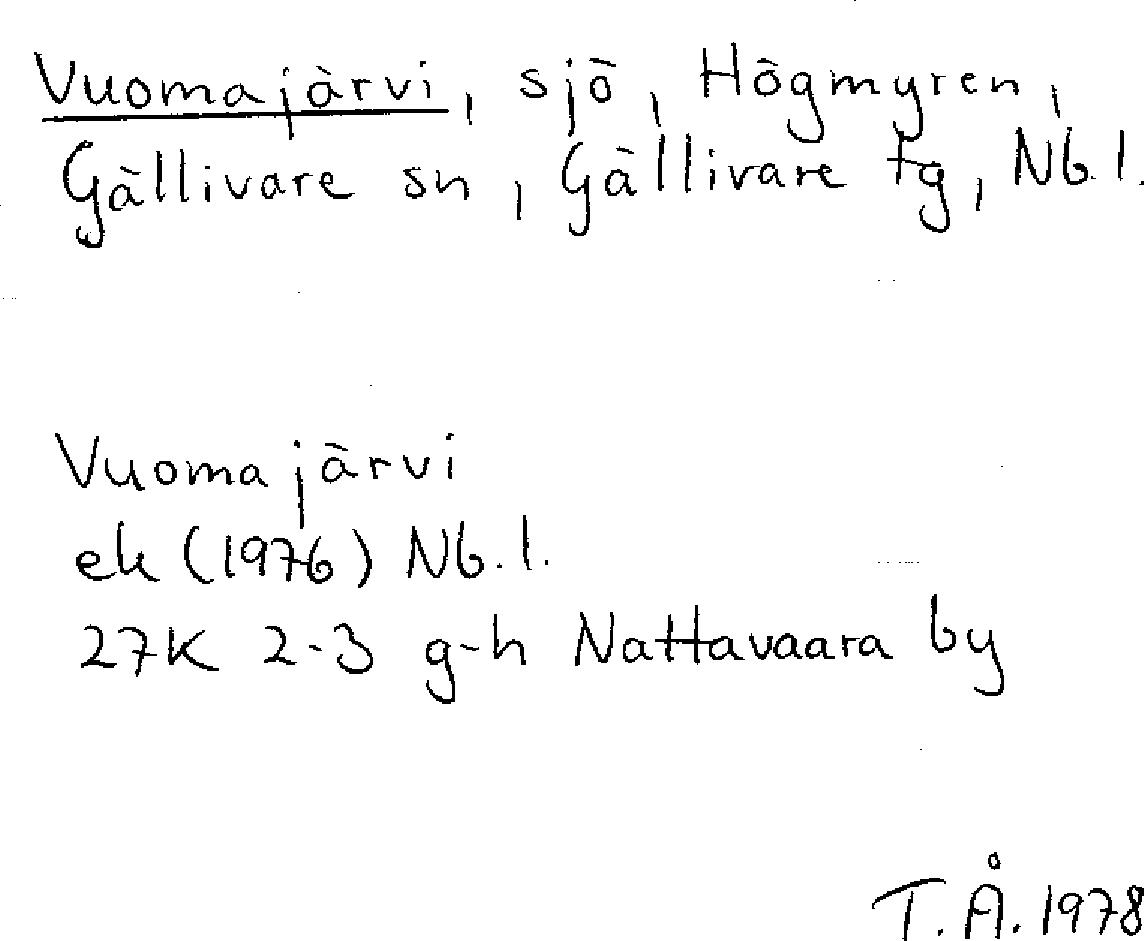 Vuomajärvi, sjö, Högmyren,
Gällivare sn, Gällivare tg, Nb.l.
Vuomajärvi
ek (1976) Nb.l.
27K 2-3 g-h Nattavaara by
T.Å. 1978